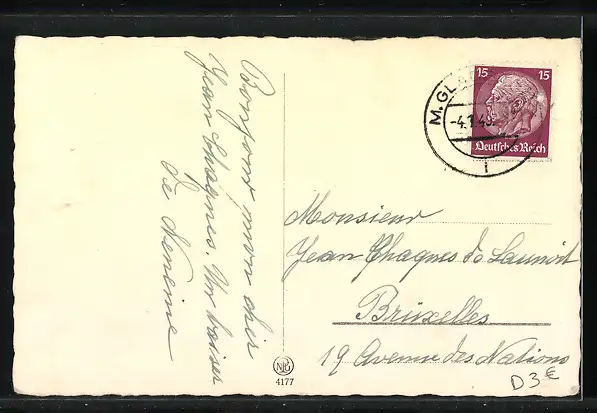 Bonjour mon cher
Jean Chaques. Un baiser
de Neneine
M. GL
-4.1.4
i
15 15
Deutsches Reich
Monsieur
Jean Chaques de Launoit
Bruxelles
19 Avenue des Nations
4177
D3€